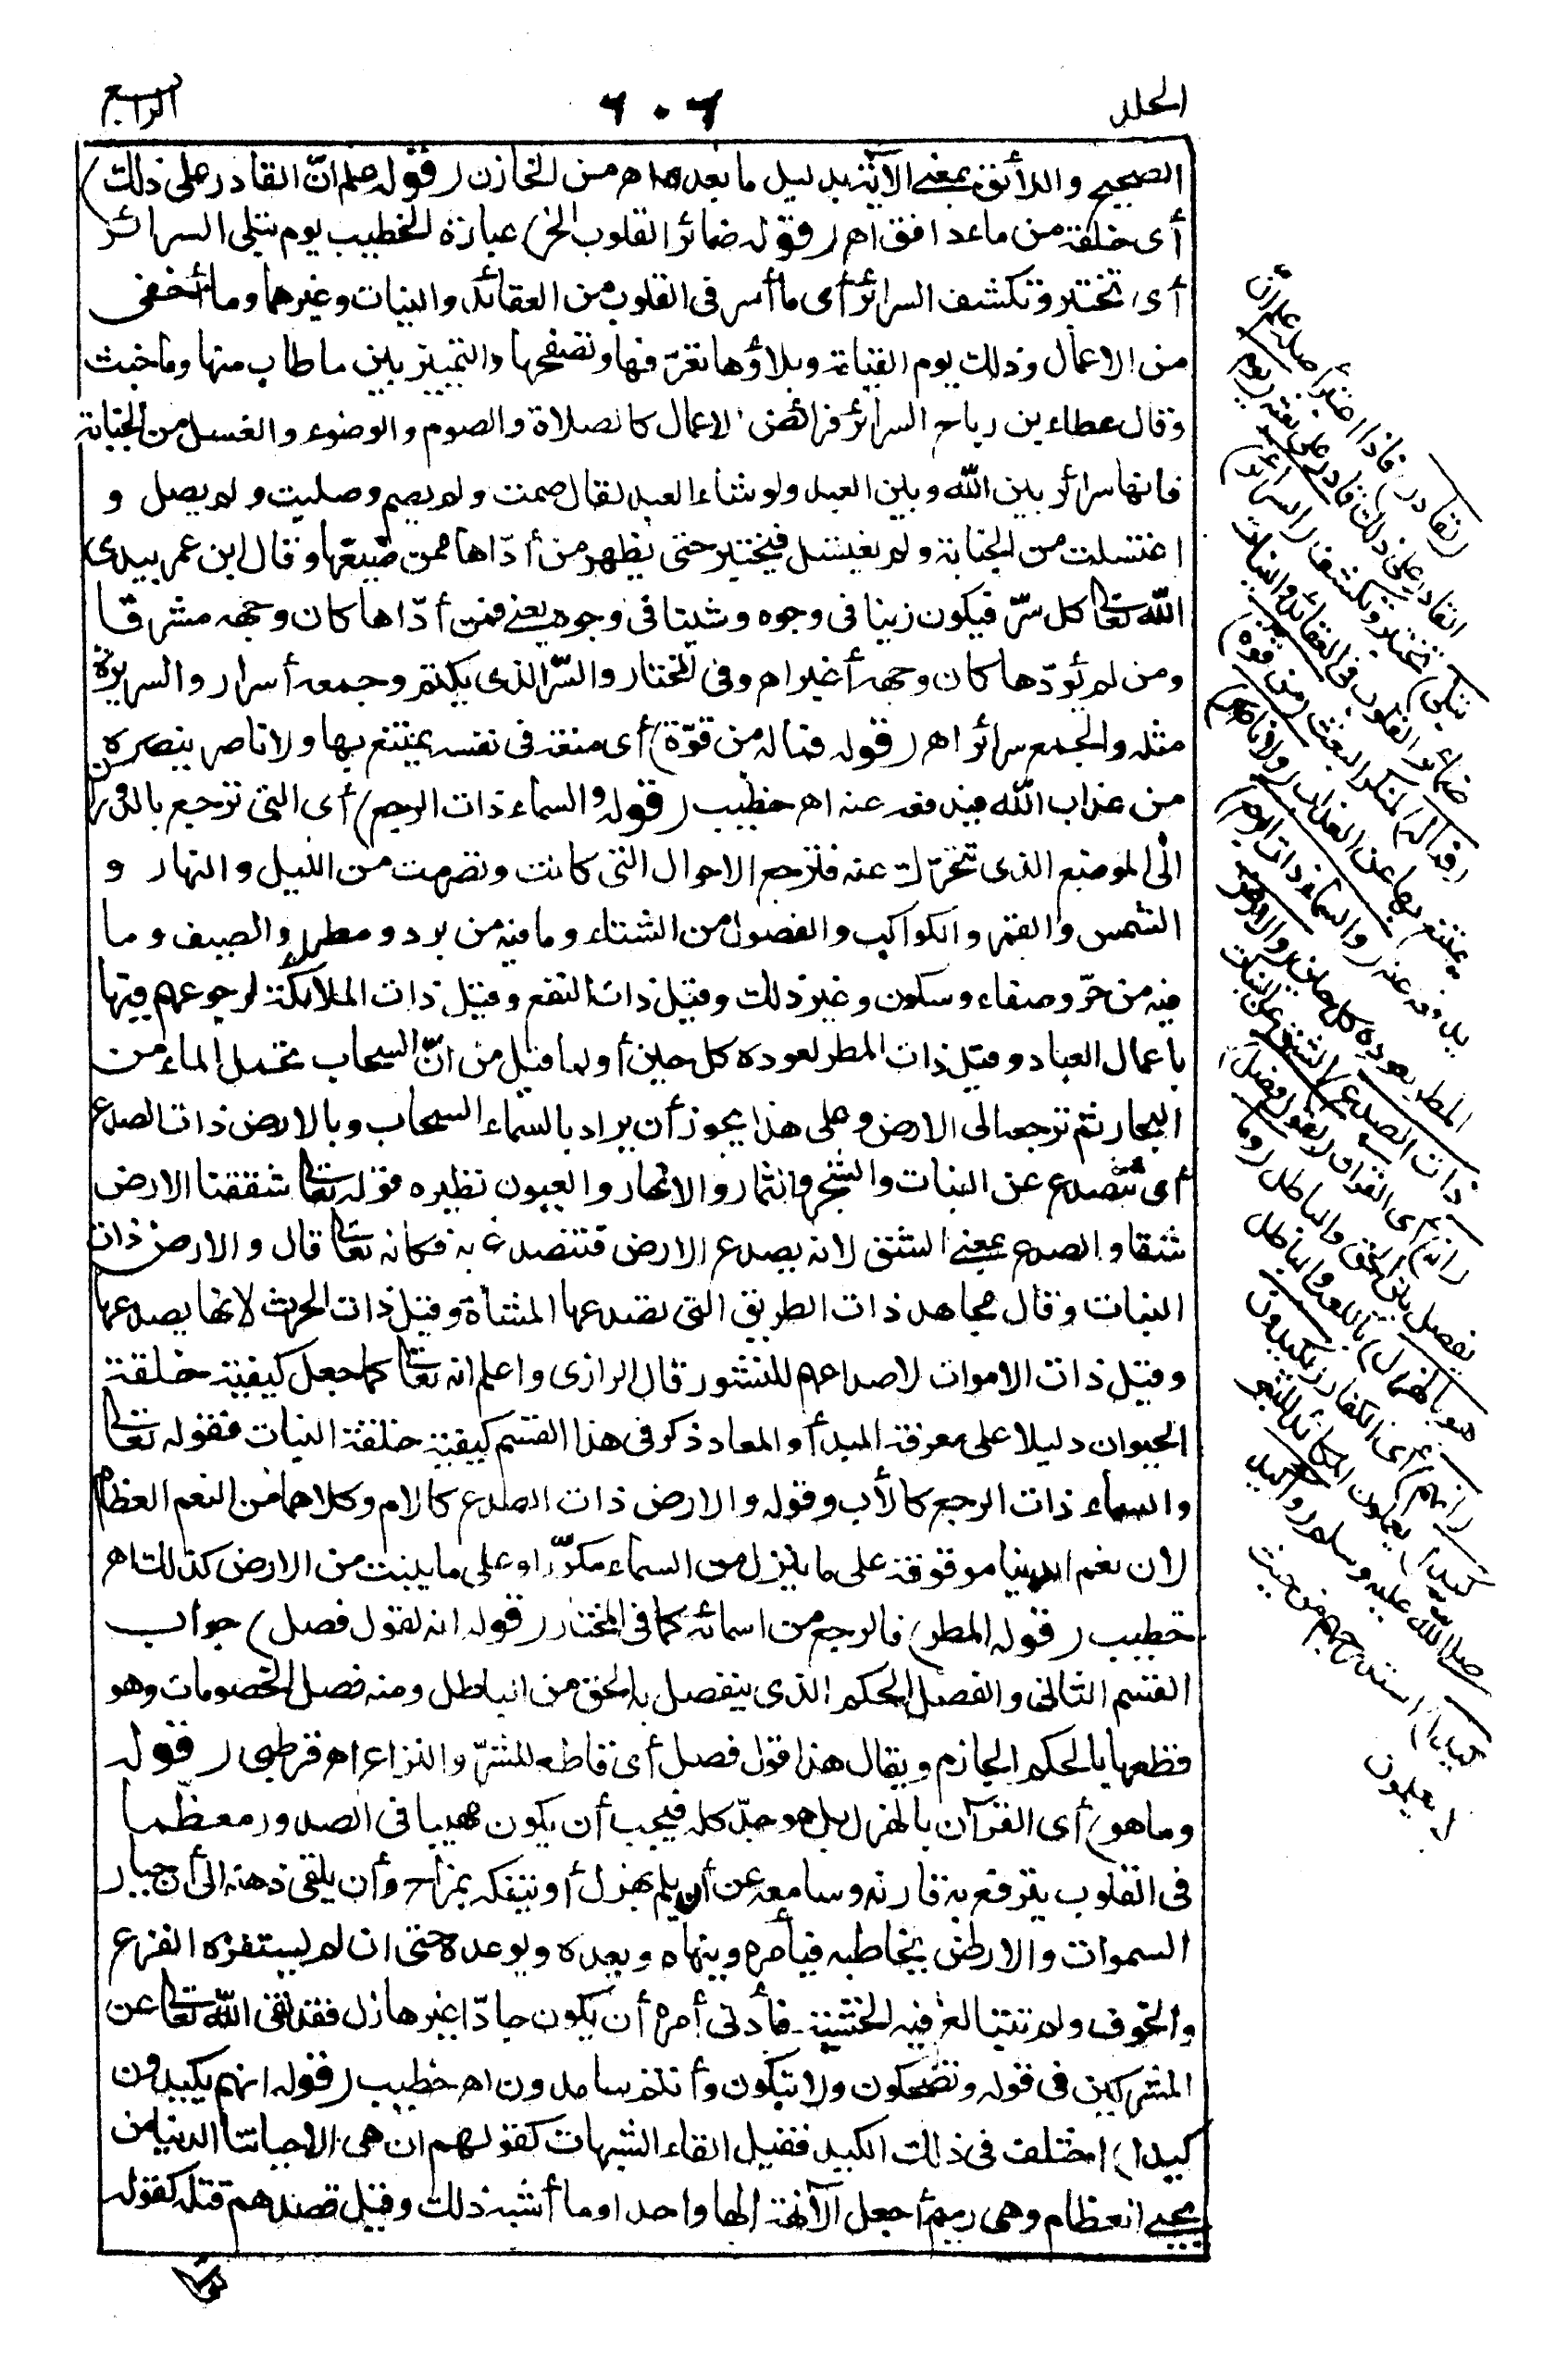 المجلد
٦٠٦
الرابع
الصحيح واللائق بمعنى الآية بدليل ما بعده اهـ من الخازن (قوله علم انّ القادر على ذلك)
أى خلقه من ماء دافق اهـ (قوله ضمائر القلوب الخ) عبارة الخطيب يوم تبلى السرائر
أى تختبر وتكشف السرائر أى ما أسر فى القلوب من العقائد والنيات وغيرهما وما أخفى
من الاعمال وذلك يوم القيامة وبلاؤها تعرّفها وتصفحها والتمييز بين ما طاب منها وما خبث
وقال عطاء بن رباح السرائر فرائض الاعمال كالصلاة والصوم والوضوء والغسل من الجنابة
فانها سرائر بين الله وبين العبد ولو شاء العبد لقال صمت ولم يصم وصليت ولم يصل و
اغتسلت من الجنابة ولم يغتسل فيختبر حتى يظهر من أدّاها ممن ضيعها وقال ابن عمر يبدى
الله تعالى كل سرّ فيكون زينا فى وجوه وشينا فى وجوه يعنى فمن أدّاها كان وجهه مشرقا
ومن لم يؤدّها كان وجهه أغبر اهـ وفى المختار والسّر الذى يكتم وجمعه أسرار والسريرة
مثله والجمع سرائر اهـ (قوله فماله من قوّة) أى منعة فى نفسه يمتنع بها ولا ناصر ينصره
من عذاب الله فيدفعه عنه اهـ خطيب (قوله والسماء ذات الرجع) أى التى ترجع بالدوران
الى الموضع الذى تتحرّك عنه فترجع الاحوال التى كانت وتصرمت من الليل والنهار و
الشمس والقمر والكواكب والفصول من الشتاء وما فيه من برد ومطر والصيف وما
فيه من حرّ وصفاء وسكون وغير ذلك وقيل ذات النفع وقيل ذات الملائكة لرجوعهم فيها
باعمال العباد وقيل ذات المطر لعوده كل حين أو لما قيل من انّ السحاب تحمل الماء من
البحار ثم ترجعه الى الارض وعلى هذا يجوز أن يراد بالسماء السحاب وبالارض ذات الصدع
أى تتصدع عن النبات والشجر والثمار والانهار والعيون نظيره قوله تعالى شققنا الارض
شقا والصدع بمعنى الشق لانه يصدع الارض فتنصدع به فكانه تعالى قال والارض ذات
النبات وقال مجاهد ذات الطريق التى تصدعها المشاة وقيل ذات الحرث لانها يصدعها
وقيل ذات الاموات لانصداعهم للنشور قال الرازى واعلم انه تعالى كما جعل كيفية خلقة
الحيوان دليلا على معرفة المبدأ والمعاد ذكر فى هذا القسم كيفية خلقة النبات فقوله تعالى
والسماء ذات الرجع كالأب وقوله والارض ذات الصدع كالام وكلاهما من النعم العظام
لان نعم الدنيا موقوفة على ما ينزل من السماء مكرّرا وعلى ما ينبت من الارض كذلك اهـ
خطيب (قوله المطر) فالرجع من اسمائه كما فى المختار (قوله انه لقول فصل) جواب
القسم الثانى والفصل الحكم الذى ينفصل به الحق من الباطل ومنه فصل الخصومات وهو
قطعها بالحكم الجازم ويقال هذا قول فصل أى قاطع للشرّ والنزاع اهـ قرطبى (قوله
وما هو) أى القرآن بالهزل بل هو جدّ كله فيجب أن يكون مهيبا فى الصدور معظما
فى القلوب يترفع به قارئه وسامعه عن أن يلم بهزل أو يتفكه بمزاح وأن يلقى ذهنه الى أن جبار
السموات والارض يخاطبه فيأمره وينهاه ويعده ويوعده حتى ان لم يستفزه الفزع
والخوف ولم تتبالغ فيه الخشية فأدنى أمره أن يكون جادّا غير هازل فقد نفى الله تعالى عن
المشركين فى قوله وتضحكون ولا تبكون وأنتم سامدون اهـ خطيب (قوله انهم يكيدون
كيدا) اختلف فى ذلك الكيد فقيل القاء الشبهات كقولهم ان هى الا حياتنا الدنيا من
يحيى العظام وهى رميم أجعل الآلهة الها واحدا وما أشبه ذلك وقيل قصدهم قتله كقوله
القادر) فاذا اعتبر أصله علم ان
القادر على ذلك قادر على بعثه (يوم
تبلى) تختبر وتكشف (السرائر)
ضمائر القلوب فى العقائد والنيات
(فماله) لمنكر البعث (من قوة)
يمتنع بها عن العذاب (ولا ناصر)
يدفعه عنه (والسماء ذات الرجع)
المطر لعوده كل حين (والارض
ذات الصدع) الشق عن النبات
(انه) أى القرآن (لقول فصل)
يفصل بين الحق والباطل (وما
هو بالهزل) باللعب والباطل
(انهم) أى الكفار (يكيدون
كيدا) يعملون المكائد للنبى
صلى الله عليه وسلم (وأكيد
كيدا) استدرجهم من حيث
لا يعلمون